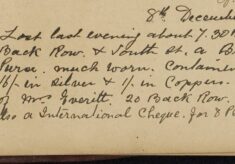 8th December
Lost last evening about 7.30
Back Row. & South St. a B
Purse. much worn. Contained
16/- in silver & 1/- in Coppers.
of Mrs Everitt, 20 Back Row.
also a International Cheque. for 8